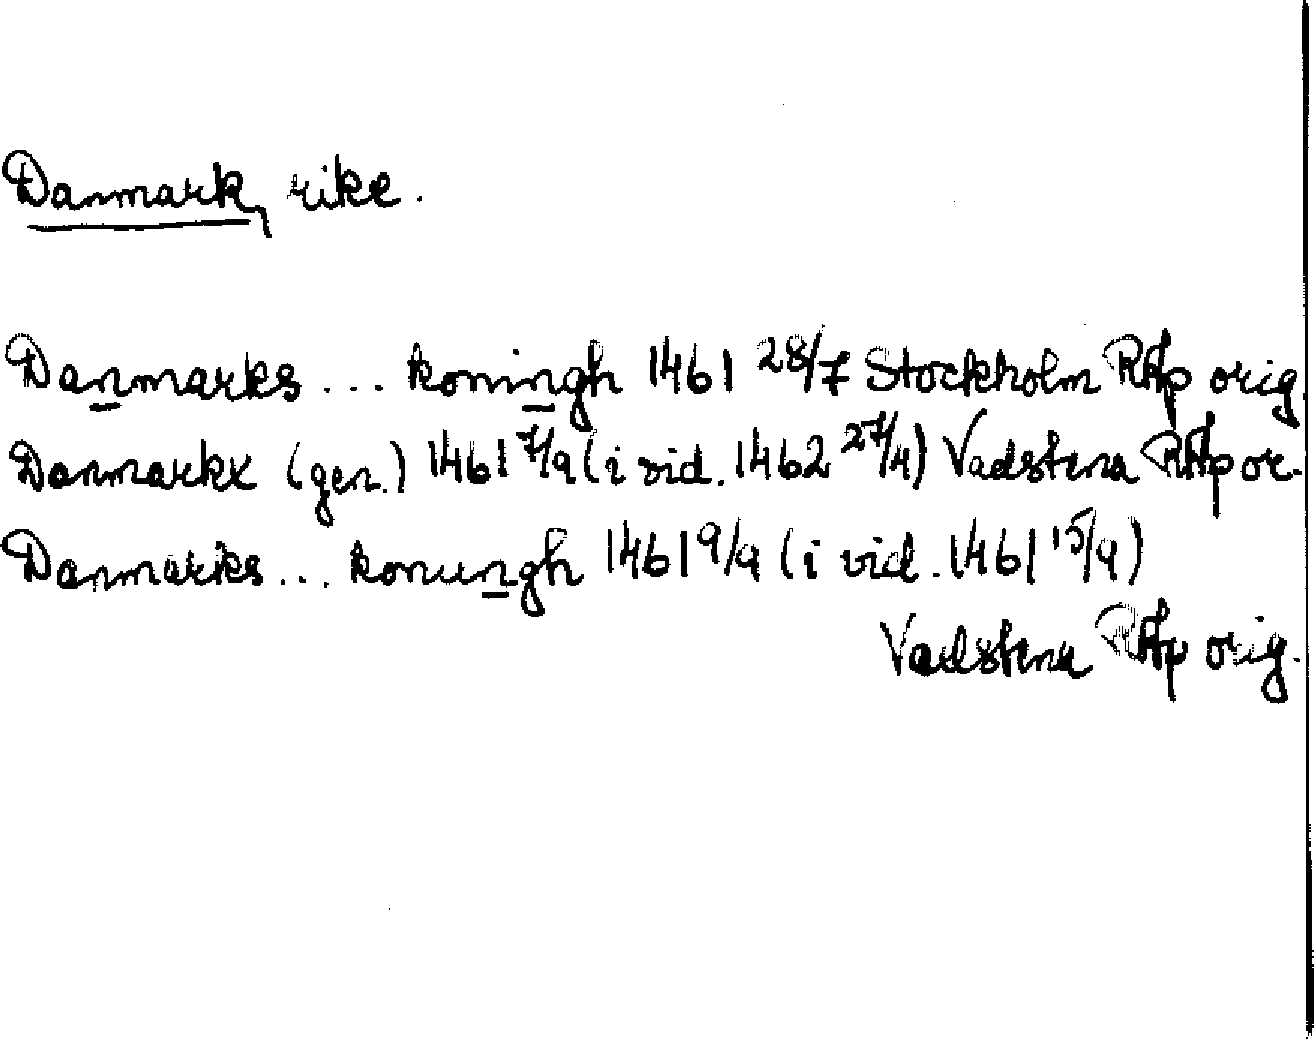 Danmark, rike.
Danmarks ... koningh 1461 28/7 Stockholm RAp orig.
Danmarkx (gen.) 1461 7/9 (i vid. 1462 27/4) Vadstena RAp or.
Danmarks ... konungh 1461 9/9 (i vid. 1461 15/9)
Vadstena RAp orig.